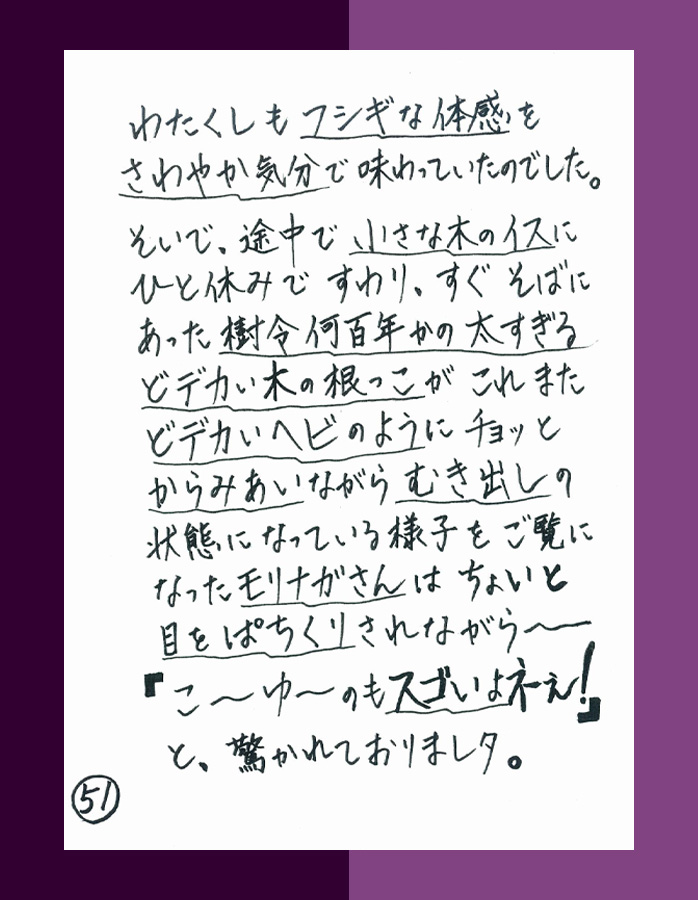 わたくしも フシギな体感を
さわやか気分で 味わっていたのでした。
そいで、途中で 小さな木のイスに
ひと休みで すわり、すぐ そばに
あった 樹令何百年かの 太すぎる
どデカい木の根っこが これまた
どデカいヘビのように チョッと
からみあいながら むき出しの
状態になっている様子を ご覧に
なったモリナガさんは ちょいと
目をぱちくりされながら〜〜
『こ〜ゆ〜のもスゴいよネーえ!』
と、驚かれておりましタ。
51